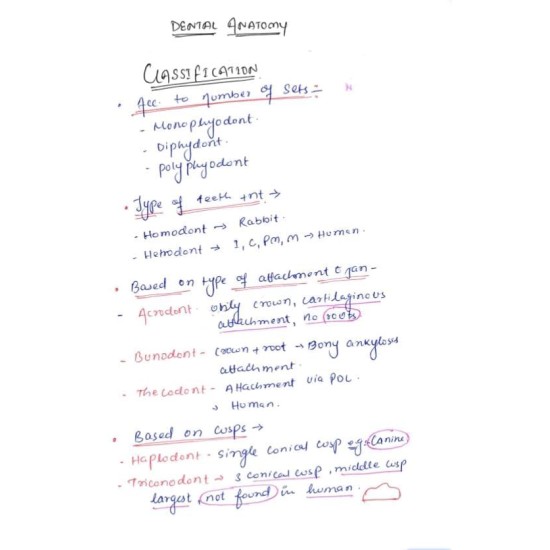 DENTAL ANATOMY
CLASSIFICATION
• Acc. to number of sets :-
- Monophyodont.
- Diphydont.
- Polyphyodont
• Type of teeth +nt →
- Homodont → Rabbit.
- Hetrodont → I, C, Pm, M → Human.
• Based on type of attachment organ -
- Acrodent. only crown, cartilaginous
attachment, no roots
- Bunodont - crown + root → Bony ankylosis
attachment.
- Thecodont - Attachment via PDL.
→ Human.
• Based on cusps →
- Haplodont - single conical cusp eg. Canine
- Triconodont → 3 conical cusp, middle cusp
largest, not found in human.